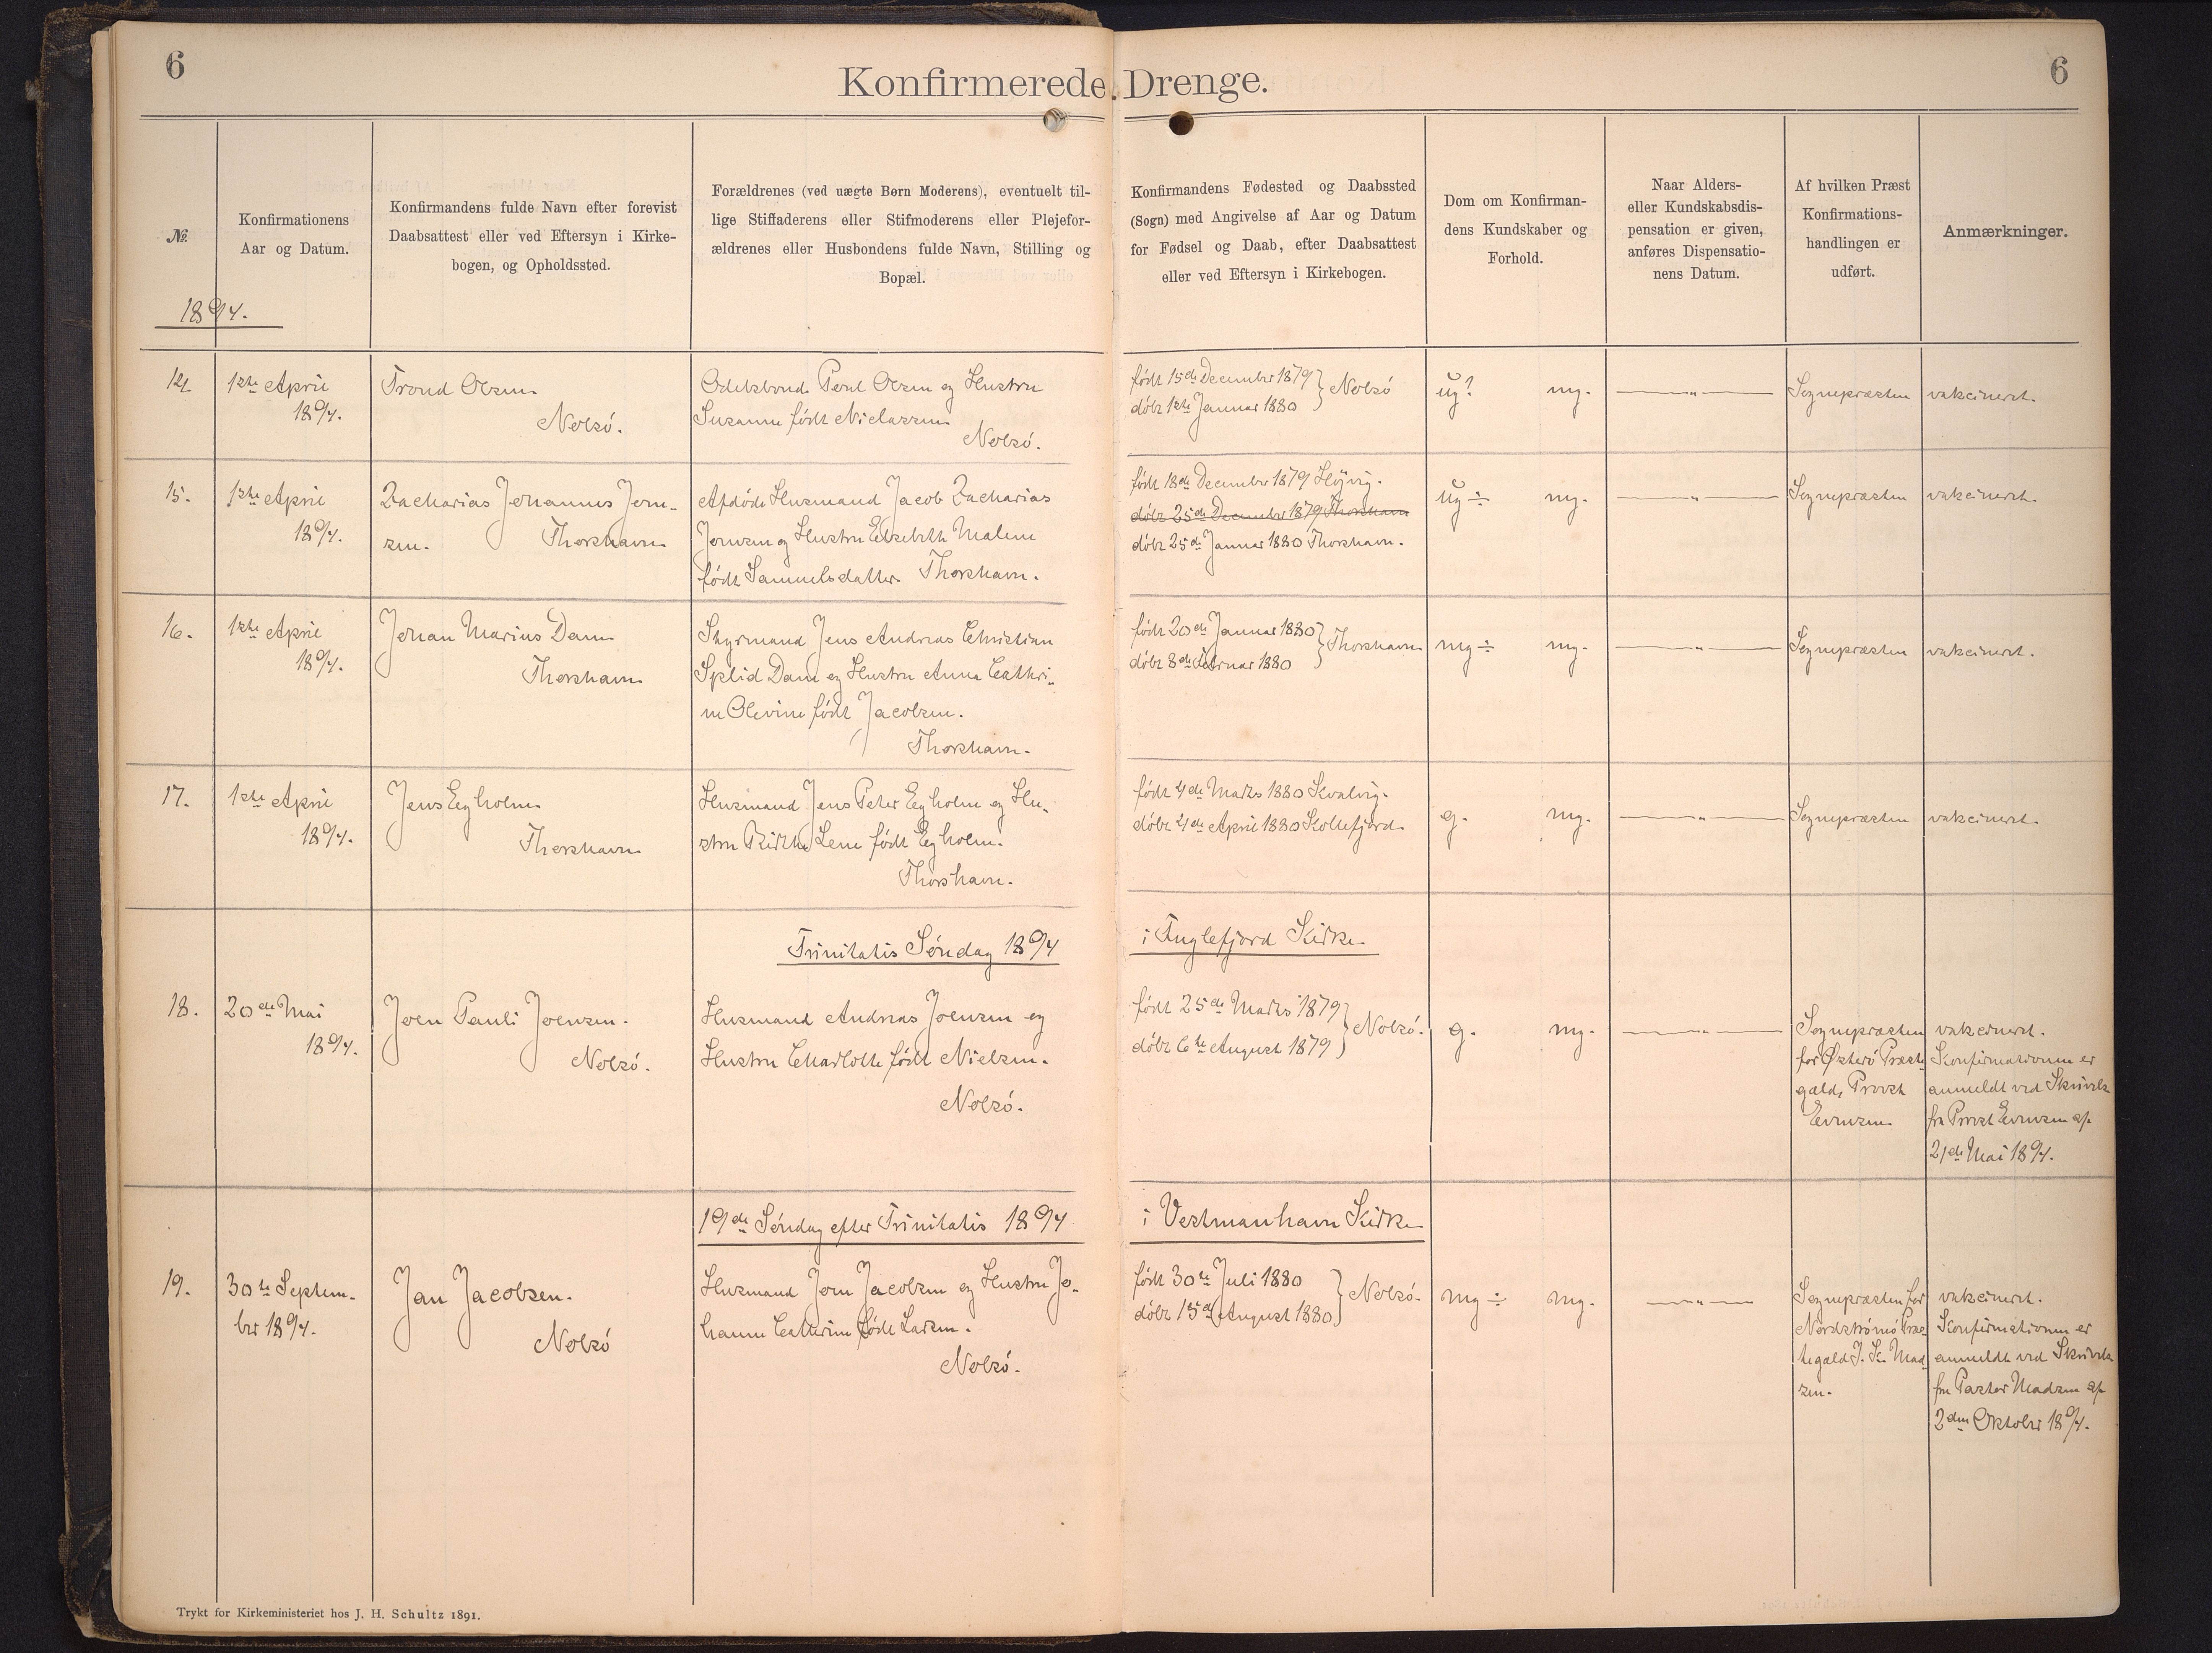 6
Konfirmerede Drenge.
6
№
Konfirmationens
Aar og Datum.
Konfirmandens fulde Navn efter forevist
Daabsattest eller ved Eftersyn i Kirke-
bogen, og Opholdssted.
Forældrenes (ved uægte Børn Moderens), eventuelt til-
lige Stiffaderens eller Stifmoderens eller Plejefor-
ældrenes eller Husbondens fulde Navn, Stilling og
Bopæl.
Konfirmandens Fødested og Daabssted
(Sogn) med Angivelse af Aar og Datum
for Fødsel og Daab, efter Daabsattest
eller ved Eftersyn i Kirkebogen.
Dom om Konfirman-
dens Kundskaber og
Forhold.
Naar Alders-
eller Kundskabsdis-
pensation er given,
anføres Dispensatio-
nens Datum.
Af hvilken Præst
Konfirmations-
handlingen er
udført.
Anmærkninger.
1894.
14.
1ste April
1894.
Trond Olsen
Nolsö.
Odelsbonde Poul Olsen og Hustru
Susanne født Niclassen
Nolsö.
født 15de December 1879
döbt 1ste Januar 1880
Nolsö
ug?
mg.
Sognepræsten
vakcineret.
15.
1ste April
1894.
Zacharias Johannes Joen-
sen.
Thorshavn
Afdöde Husmand Jacob Zacharias
Joensen og Hustru Elsebeth Malene
født Samuelsdatter Thorshavn.
født 18de December 1879 Höjvig.
döbt 25de December 1879 Thorshavn
döbt 25de Januar 1880 Thorshavn.
ug ÷
mg.
Sognepræsten
vakcineret.
16.
1ste April
1894.
Johan Marius Dam
Thorshavn
Styrmand Jens Andreas Christian
Splid Dam og Hustru Anna Cathri-
ne Olevine født Jacobsen.
Thorshavn.
født 20de Januar 1880
döbt 8de Februar 1880
Thorshavn
mg ÷
mg.
Sognepræsten
vakcineret.
17.
1ste April
1894.
Jens Egholm
Thorshavn
Husmand Jens Peter Egholm og Hu-
stru Birthe Lene født Egholm.
Thorshavn.
født 4de Marts 1880 Kvalvig.
döbt 4de April 1880 Kollefjord
g.
mg.
Sognepræsten
vakcineret.
Trinitatis Söndag 1894
i Fuglefjord Kirke
18.
20de Mai
1894.
Joen Pauli Joensen.
Nolsö.
Husmand Andreas Joensen og
Hustru Charlotte født Nielsen.
Nolsö.
født 25de Marts 1879
döbt 6te August 1879
Nolsö.
g.
mg.
Sognepræsten
for Østerö Præste
gæld, Provst
Evensen
vakcineret.
Konfirmationen er
anmeldt ved Skrivelse
fra Provst Evensen af
21de Mai 1894.
19de Söndag efter Trinitatis 1894
i Vestmanhavn Kirke
19.
30te Septem-
ber 1894.
Jan Jacobsen.
Nolsö
Husmand Joen Jacobsen og Hustru Jo-
hanne Cathrine født Larsen.
Nolsö.
født 30te Juli 1880
döbt 15de August 1880
Nolsö.
mg ÷
mg.
Sognepræsten for
Nordströmö Præs-
tegæld J. K. Mad
sen.
vakcineret.
Konfirmationen er
anmeldt ved Skrivelse
fra Pastor Madsen af
2den Oktober 1894.
Trykt for Kirkeministeriet hos J. H. Schultz 1891.